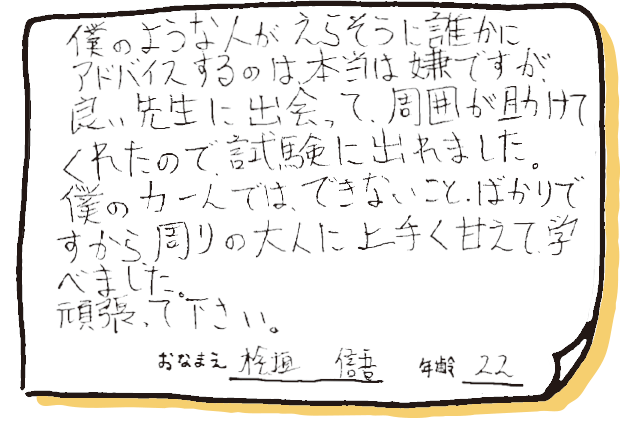 僕のような人がえらそうに誰かに
アドバイスするのは、本当は嫌ですが、
良い先生に出会って、周囲が助けて
くれたので、試験に出れました。
僕の力一人では、できないこと、ばかりで
すから周りの大人に上手く甘えて、学
べました。
頑張って下さい。
おなまえ 桧垣 信吾 年齢 22